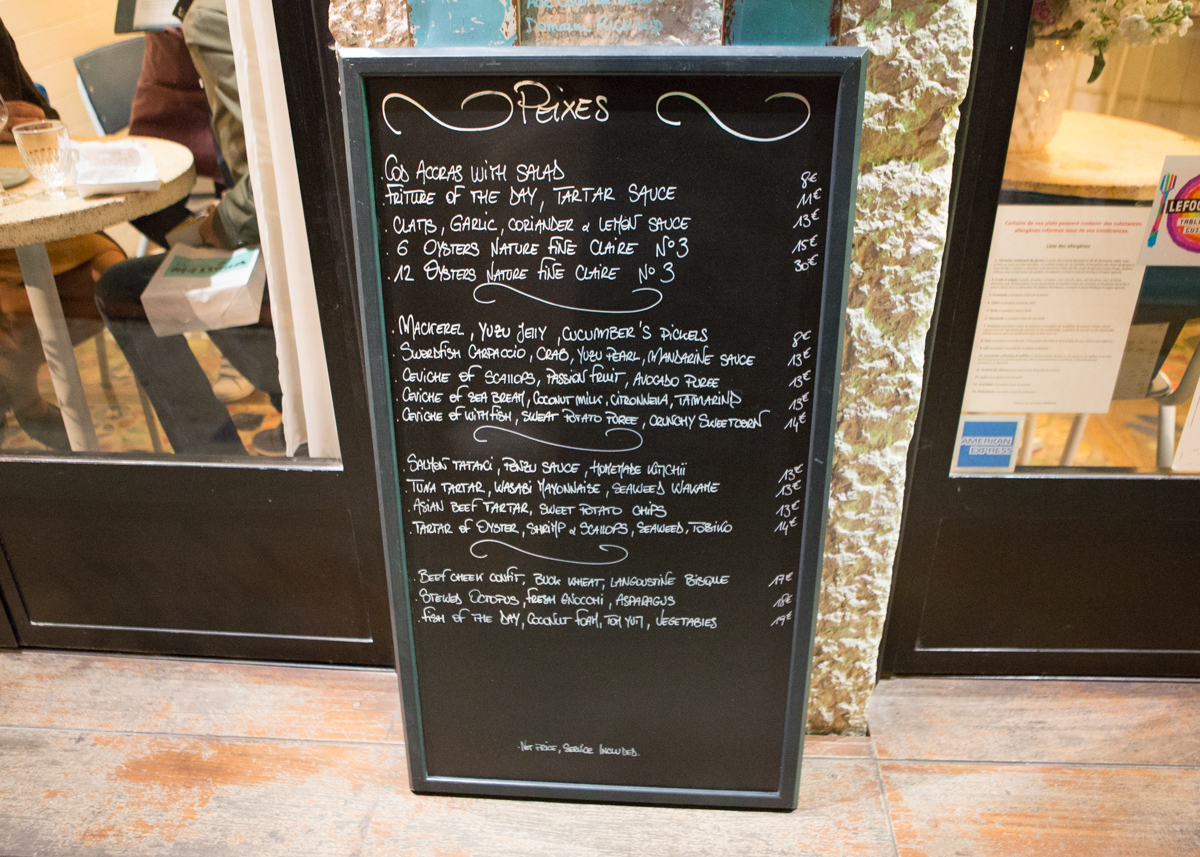 PEIXES
.COD ACCRAS WITH SALAD 8€
.FRITURE OF THE DAY, TARTAR SAUCE 11€
.CLAMS, GARLIC, CORIANDER & LEMON SAUCE 13€
.6 OYSTERS NATURE FINE CLAIRE N°3 15€
.12 OYSTERS NATURE FINE CLAIRE N°3 30€
.MACKEREL, YUZU JELLY, CUCUMBER'S PICKELS 8€
.SWORDFISH CARPACCIO, CRAB, YUZU PEARL, MANDARINE SAUCE 13€
.CEVICHE OF SCALLOPS, PASSION FRUIT, AVOCADO PUREE 13€
.CEVICHE OF SEA BREAM, COCONUT MILK, CITRONNELA, TAMARIND 13€
.CEVICHE OF WITHFISH, SWEAT POTATO PUREE, CRUNCHY SWEETCORN 14€
.SALMON TATAKI, PONZU SAUCE, HOMEMADE KIMCHII 13€
.TUNA TARTAR, WASABI MAYONNAISE, SEAWEED WAKAME 13€
.ASIAN BEEF TARTAR, SWEET POTATO CHIPS 13€
.TARTAR OF OYSTER, SHRIMP & SCALLOPS, SEAWEED, TOBIKO 14€
.BEEF CHEEK CONFIT, BUCK WHEAT, LANGOUSTINE BISQUE 17€
.STEWED OCTOPUS, FRESH GNOCCHI, ASPARAGUS 18€
.FISH OF THE DAY, COCONUT FOAM, TOM YUM, VEGETABLES 19€
.NET PRICE, SERVICE INCLUDED.
Certains de nos plats peuvent contenir des substances
allergènes informez nous de vos intolérances.
Liste des allergènes
LEFOO
TABL
GUI
AMERICAN
EXPRESS